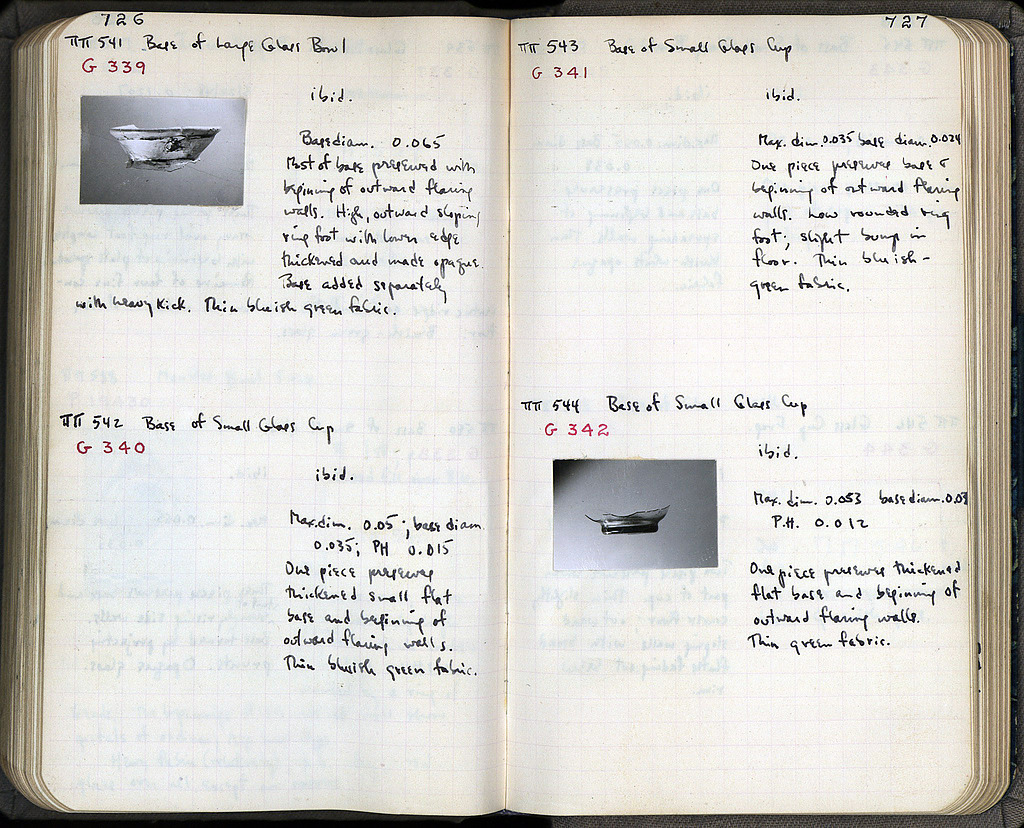 726
ΠΠ 541 Base of Large Glass Bowl
G 339
ibid.
Base diam. 0.065
Most of base preserved with
beginning of outward flaring
walls. High, outward sloping
ring foot with lower edge
thickened and made opaque.
Base added separately
with heavy kick. Thin bluish green fabric.
ΠΠ 542 Base of Small Glass Cup
G 340
ibid.
Max. dim. 0.05; base diam.
0.035; PH 0.015
One piece preserves
thickened small flat
base and beginning of
outward flaring walls.
Thin bluish green fabric.
727
ΠΠ 543 Base of Small Glass Cup
G 341
ibid.
Max. dim. 0.035 base diam. 0.024
One piece preserves base &
beginning of outward flaring
walls. Low rounded ring
foot; slight bump in
floor. Thin bluish-
green fabric.
ΠΠ 544 Base of Small Glass Cup
G 342
ibid.
Max. dim. 0.053 base diam. 0.03
P.H. 0.012
One piece preserves thickened
flat base and beginning of
outward flaring walls.
Thin green fabric.